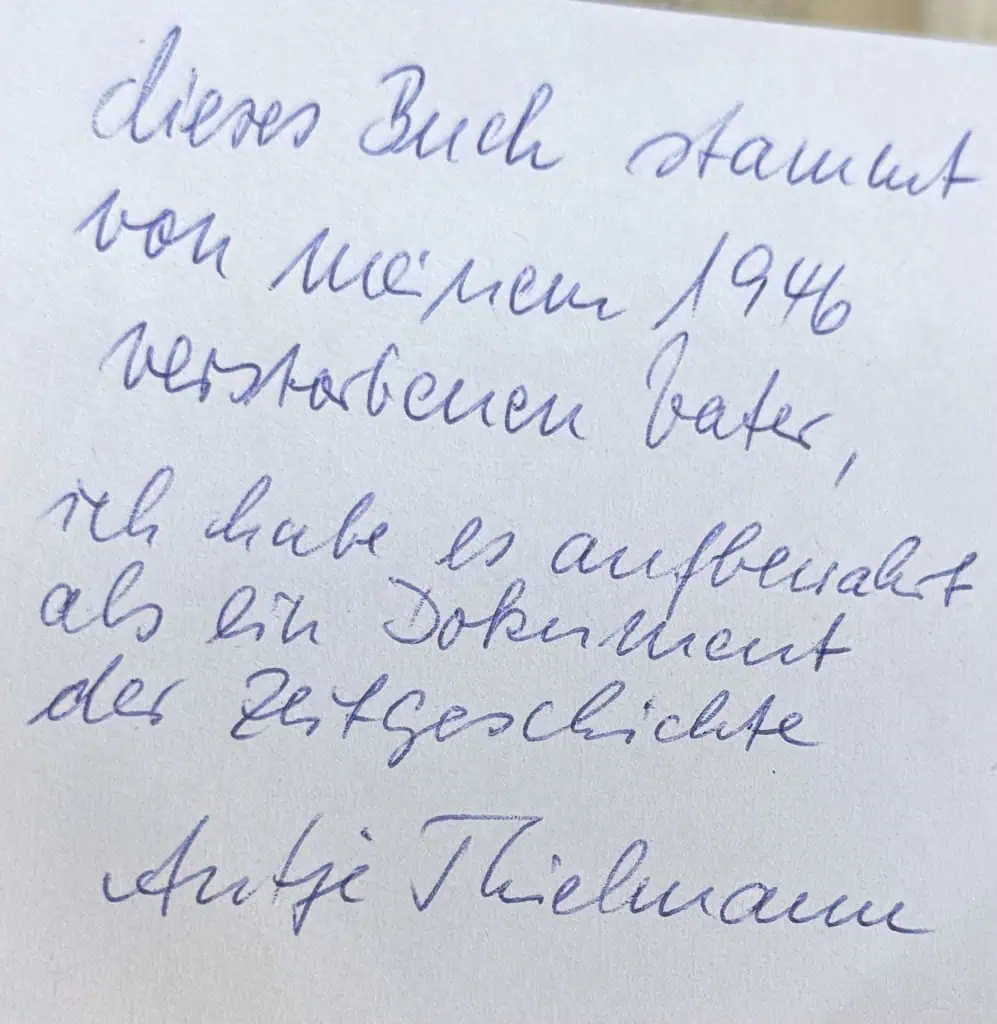 dieses Buch stammt
von meinem 1946
verstorbenen Vater,
ich habe es aufbewahrt
als ein Dokument
der Zeitgeschichte
Antje Thielmann